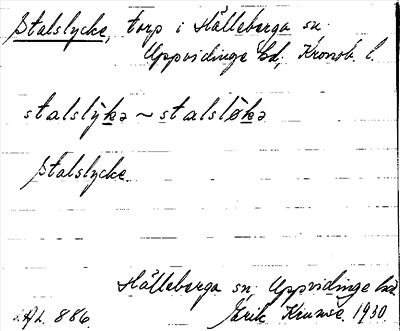 Stalslycke, torp i Hälleberga sn.
Uppvidinge hd, Kronob. l.
stalslykə ~ stalsløkə
Stalslycke
Hälleberga sn. Uppvidinge hd.
A.L. 886. 1930